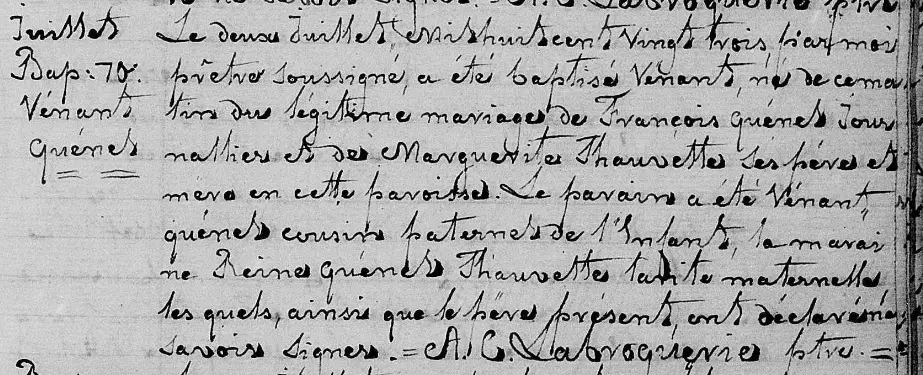 A. C. Labroquerie ptre
Juillet
Bap: 70.
Vénant
Quénel
Le deux Juillet, Mil huit cent Vingt trois, par moi
prêtre soussigné, a été baptisé Vénant, né de ce ma
tin du légitime mariage de François Quénel Jour
nallier et de Marguerite Thauvette ses pére et
mère en cette paroisse. Le parain a été Vénant
quénel cousin paternel de l'Enfant, la marai
ne Reine Quénel Thauvette tante maternelle
les quels, ainsi que le père présent, ont déclaré ne
savoir signer. = A. C. Labroquerie ptre. =